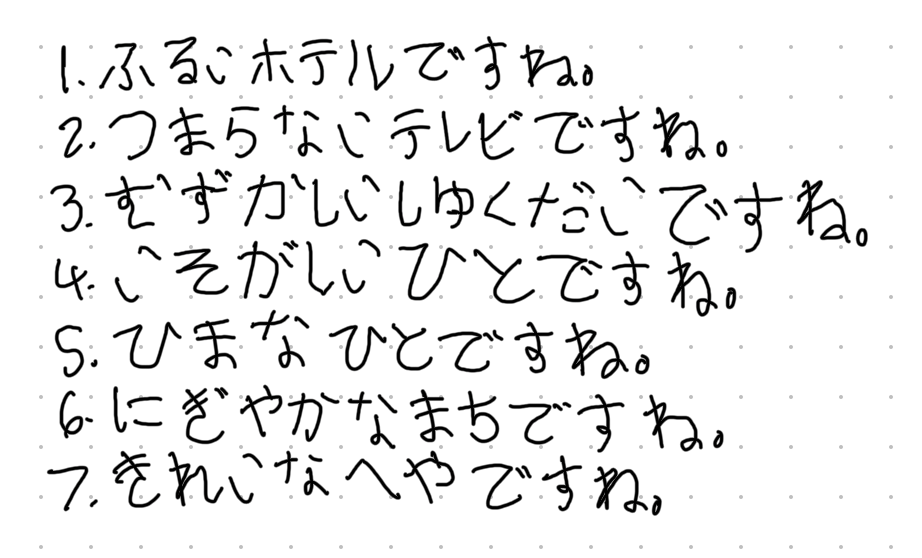 1. ふるいホテルですね。
2. つまらないテレビですね。
3. むずかしいしゅくだいですね。
4. いそがしいひとですね。
5. ひまなひとですね。
6. にぎやかなまちですね。
7. きれいなへやですね。